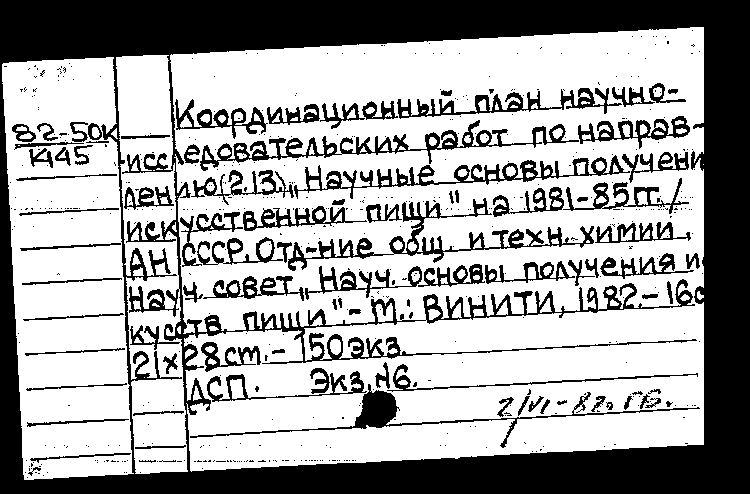 Координационный план научно-
82-50К
К445
исследовательских работ по направ-
лению (2.13.) „Научные основы получени
искусственной пищи" на 1981-85гг. /
АН СССР. Отд-ние общ. и техн. химии,
Науч. совет „Науч. основы получения ис
кусств. пищи".- М.: ВИНИТИ, 1982.- 16с
21х28см.- 150экз.
ДСП. Экз.№6.
2/VI-82г. ГБ.